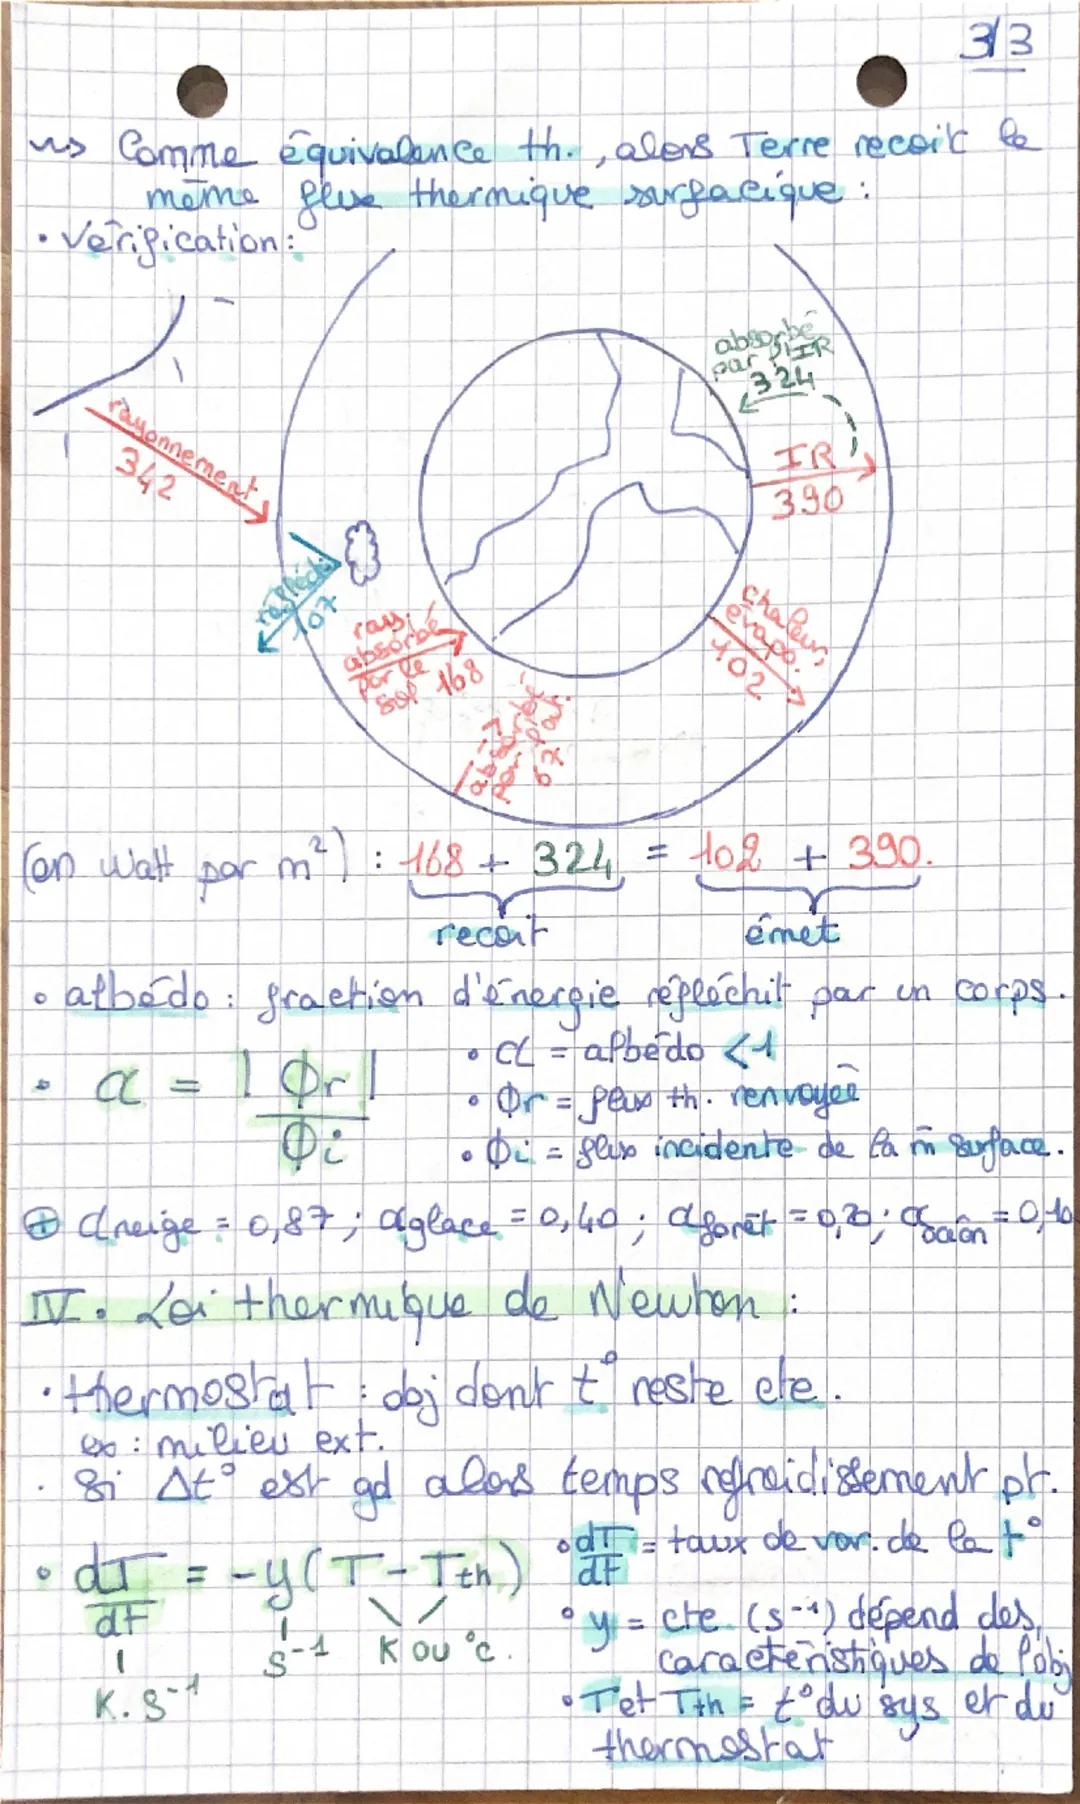 3/3
~> Comme équivalence th., alors Terre recoit le
même flux thermique surfacique :
• Vérification :
absorbé
par
IR
324
rayonnement
342
IR
390
réfléchi
107
ray.
absorbé
par le
sol 168
chaleur,
évapo.
102
absorbé
par
67
(en Watt par m²) : 168 + 324 = 102 + 390.
recoit émet
• albédo : fraction d'énergie réfléchit par un corps.
• α = |Φr| / Φi
• α = albédo <1
• Φr = flux th. renvoyée
• Φi = flux incidente de la m̂ surface.
⊕ αneige = 0,87 ; αglace = 0,40 ; αforêt = 0,20 ; = 0,10
IV. Loi thermique de Newton :
• thermostat : obj dont t° reste cte.
ex : milieu ext.
• Si Δt° est gd alors temps refroidissement pt.
• dT/dt = -y(T - Tth)
K.s⁻¹ s⁻¹ K ou °C.
• dT/dt = taux de var. de la t°
• y = cte (s⁻¹) dépend des
caractéristiques de l'obj
• T et Tth = t° du sys et du
thermostat